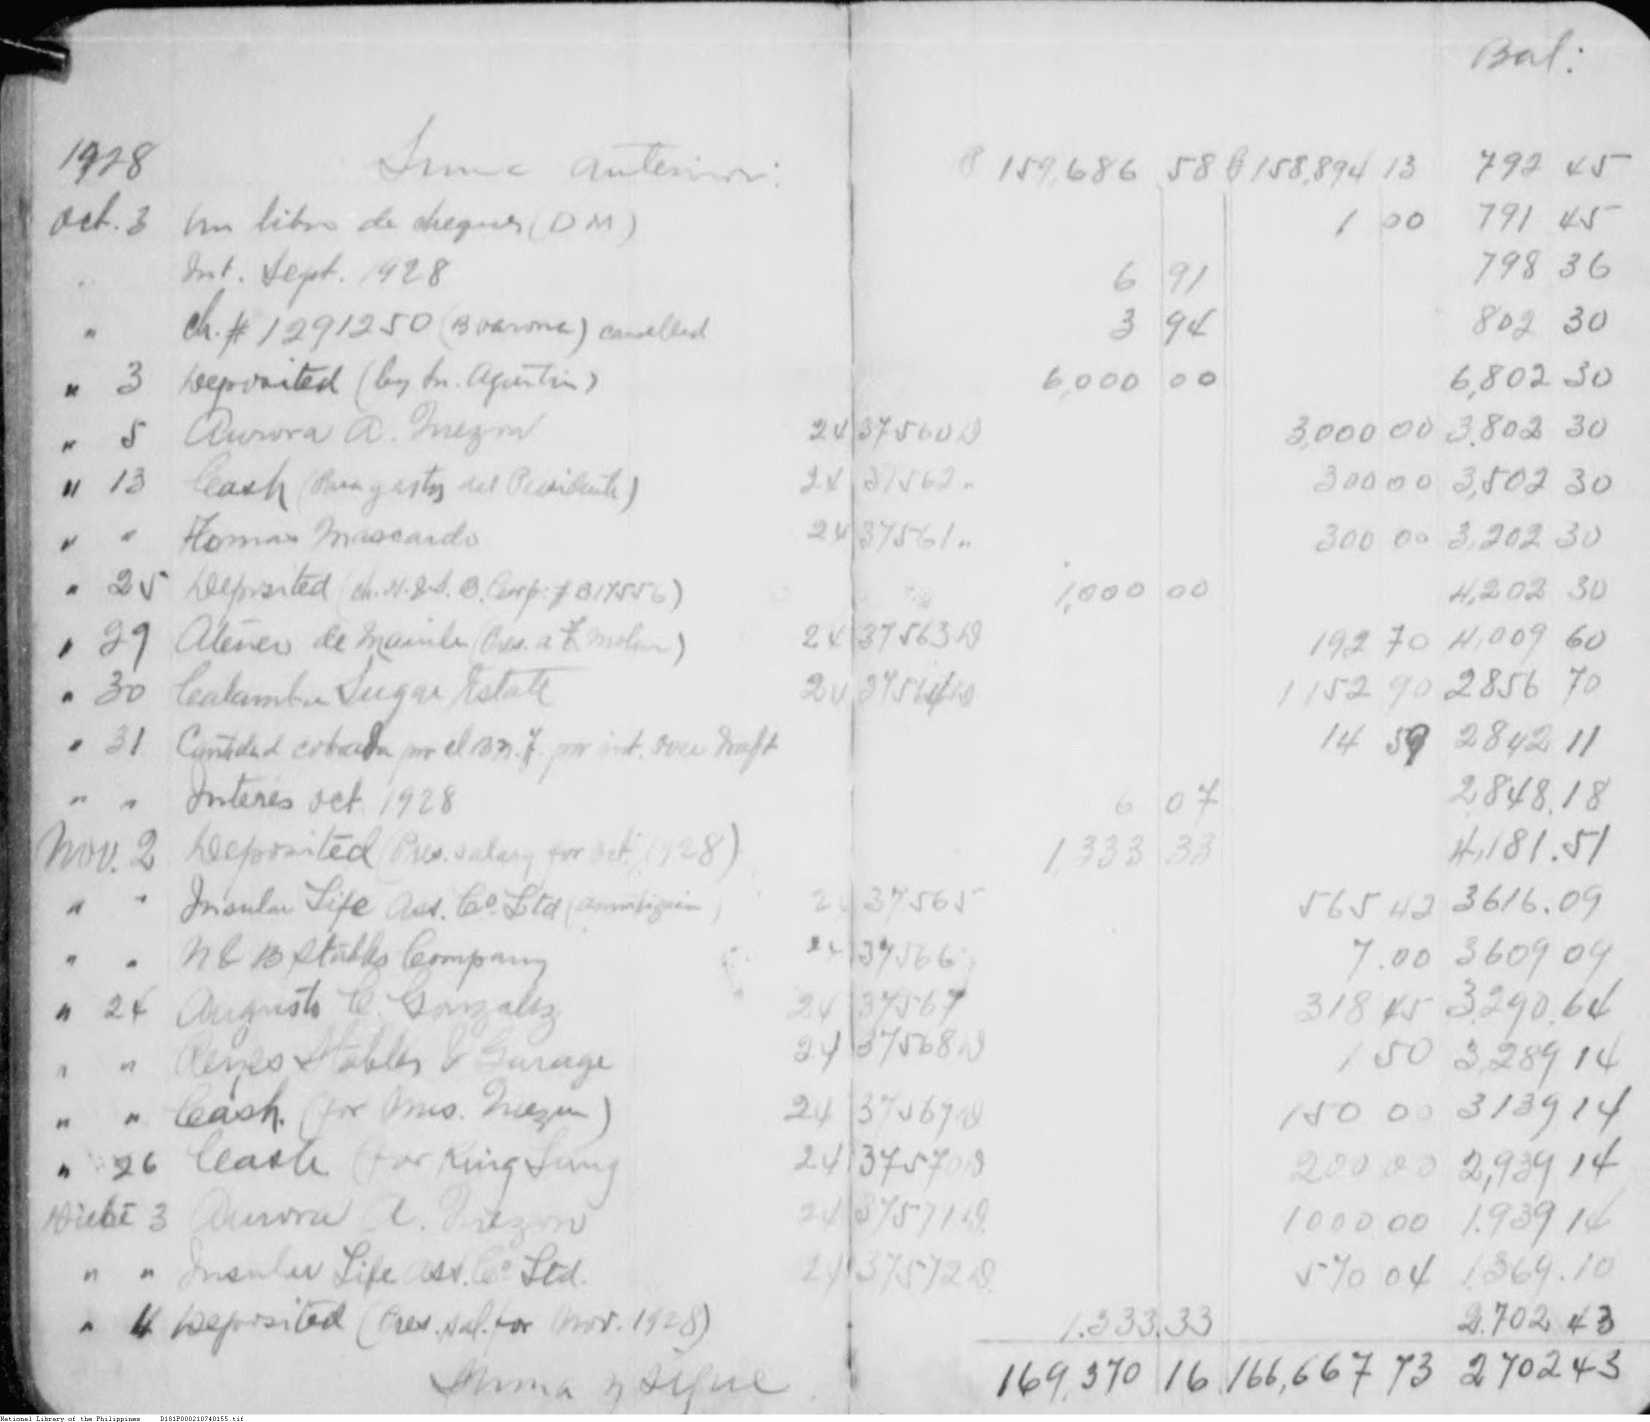 Bal:
1928 Suma anterior: ₱ 159,686 58 ₱ 158,894 13 792 45
Oct. 3 Un libro de cheques (DM) 1 00 791 45
Int. Sept. 1928 6 91 798 36
" ch. # 1291250 (B Varona) cancelled 3 94 802 30
" 3 Deposited (by Sr. Agustin) 6,000 00 6,802 30
" 5 Aurora A. Quezon 24 37560 D 3,000 00 3,802 30
" 13 Cash (Para gastos del Presidente) 24 37562 " 300 00 3,502 30
" " Tomas Mascardo 24 37561 " 300 00 3,202 30
" 25 Deposited (ch. H. & S. B. Corp. # B17556) 1,000 00 4,202 30
" 29 Ateneo de Manila (Pres. a F. Molina) 24 37563 D 192 70 4,009 60
" 30 Calamba Sugar Estate 24 37564 D 1152 90 2856 70
" 31 Cantidad cobrada por el Bn. F. por int. over draft 14 59 2842 11
" " Interes Oct 1928 6 07 2848.18
Nov. 2 Deposited (Pres. salary for Oct. 1928) 1,333 33 4,181.51
" " Insular Life Ass. Co. Ltd ( ) 24 37565 565 42 3616.09
" " N & B Stables Company 24 37566 7.00 3609 09
" 24 Augusto C. Gonzalez 24 37567 318 45 3,290.64
" " Reyes Stables & Garage 24 37568 D 1 50 3,289 14
" " Cash. (for Mrs. Quezon) 24 37569 D 150 00 3139 14
" 26 Cash (for King Sung 24 37570 D 200 00 2,939 14
Dicbe 3 Aurora A. Quezon 24 37571 D. 1000 00 1.939 14
" " Insular Life Ass. Co. Ltd. 24 37572 D. 570 04 1369.10
" 4 Deposited (Pres. sal. for Nov. 1928) 1.333.33 2.702 43
Suma y sigue 169,370 16 166,667 73 2702 43
National Library of the Philippines D181P000210740155.tif